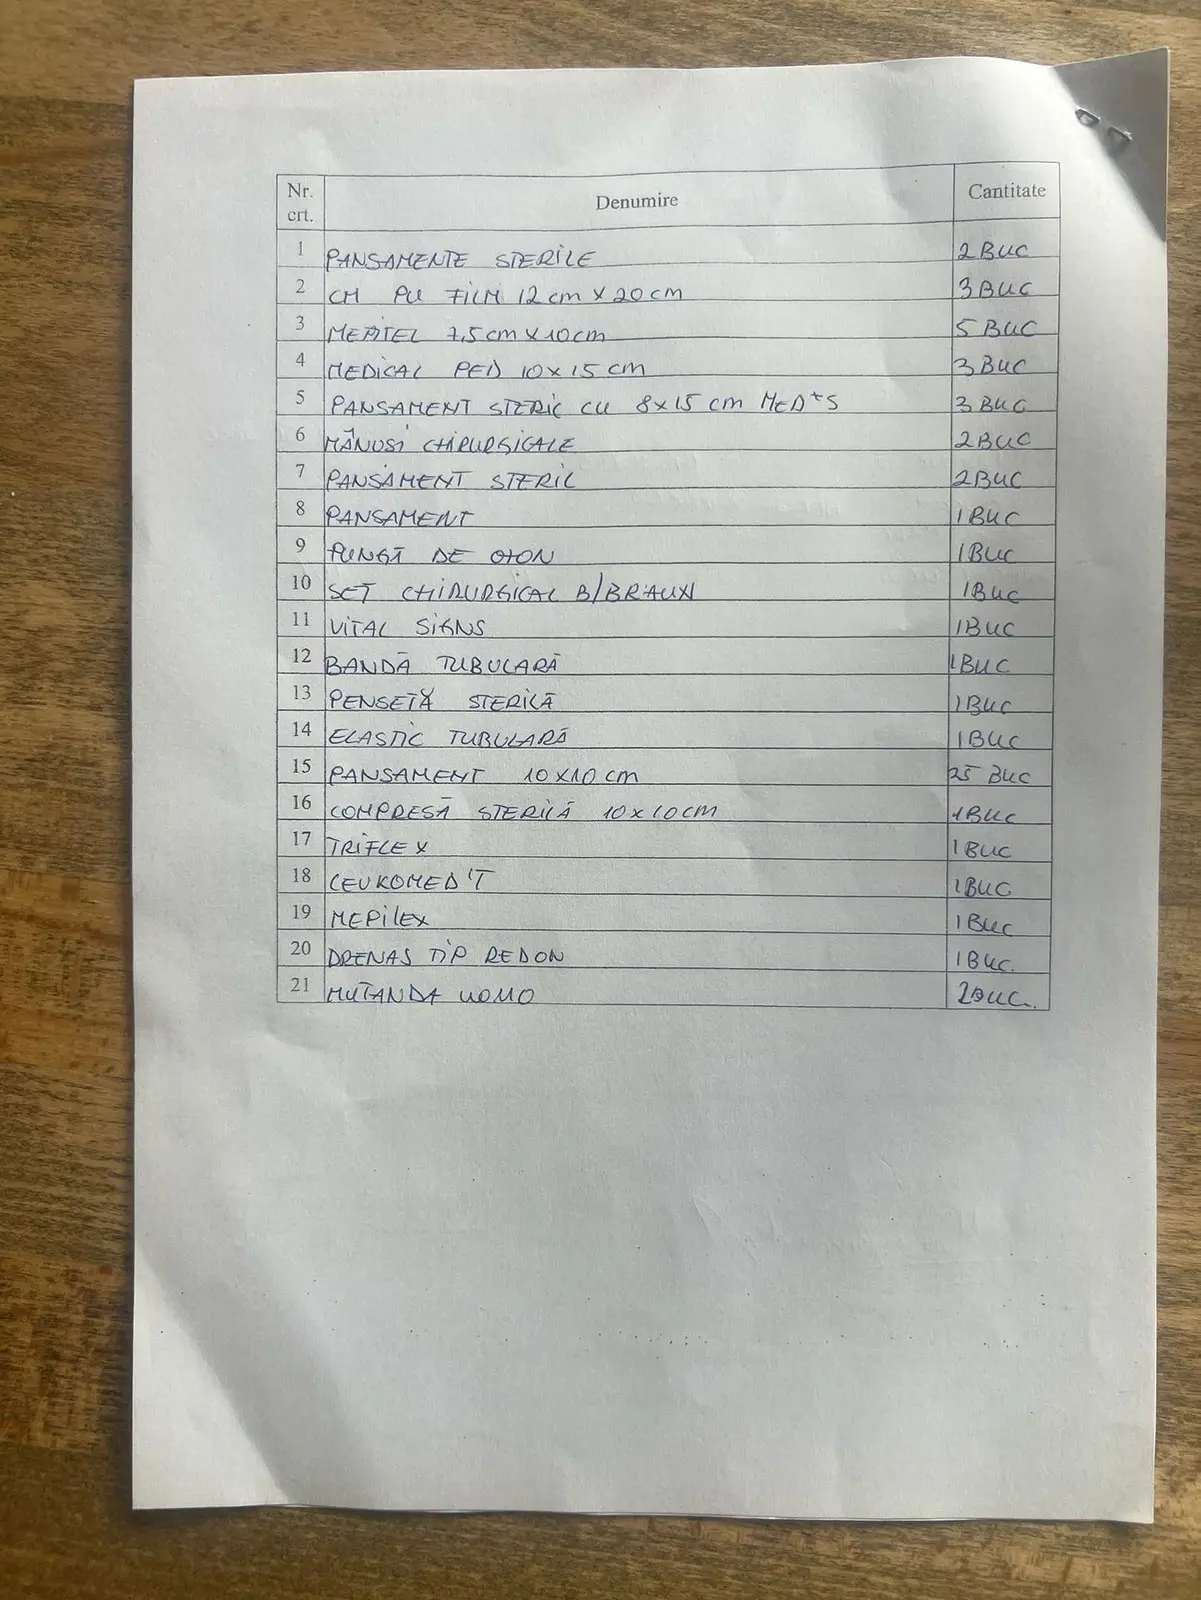 Nr. crt. Denumire Cantitate
1 PANSAMENTE STERILE 2 BUC
2 CM PU FILM 12 cm X 20 cm 3 BUC
3 MEPITEL 7,5 cm X 10 cm 5 BUC
4 MEDICAL PED 10 X 15 cm 3 BUC
5 PANSAMENT STERIL CU 8x15 cm MED+S 3 BUC
6 MĂNUSI CHIRURGICALE 2 BUC
7 PANSAMENT STERIL 2 BUC
8 PANSAMENT 1 BUC
9 PUNGĂ DE 1 BUC
10 SET CHIRURGICAL B/BRAUN 1 BUC
11 VITAL SIGNS 1 BUC
12 BANDĂ TUBULARĂ 1 BUC
13 PENSETĂ STERILĂ 1 BUC
14 ELASTIC TUBULARĂ 1 BUC
15 PANSAMENT 10X10 cm 25 BUC
16 COMPRESĂ STERILĂ 10x10cm 1 BUC
17 TRIFLEX 1 BUC
18 LEUKOMED'T 1 BUC
19 MEPILEX 1 BUC
20 DRENAS TIP REDON 1 BUC.
21 MUTANDA UOMO 2 BUC.